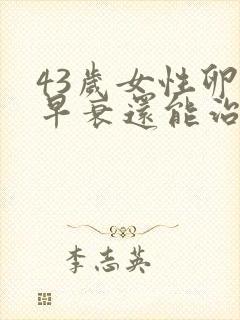 43歲女性卵
早衰還能治
李志英